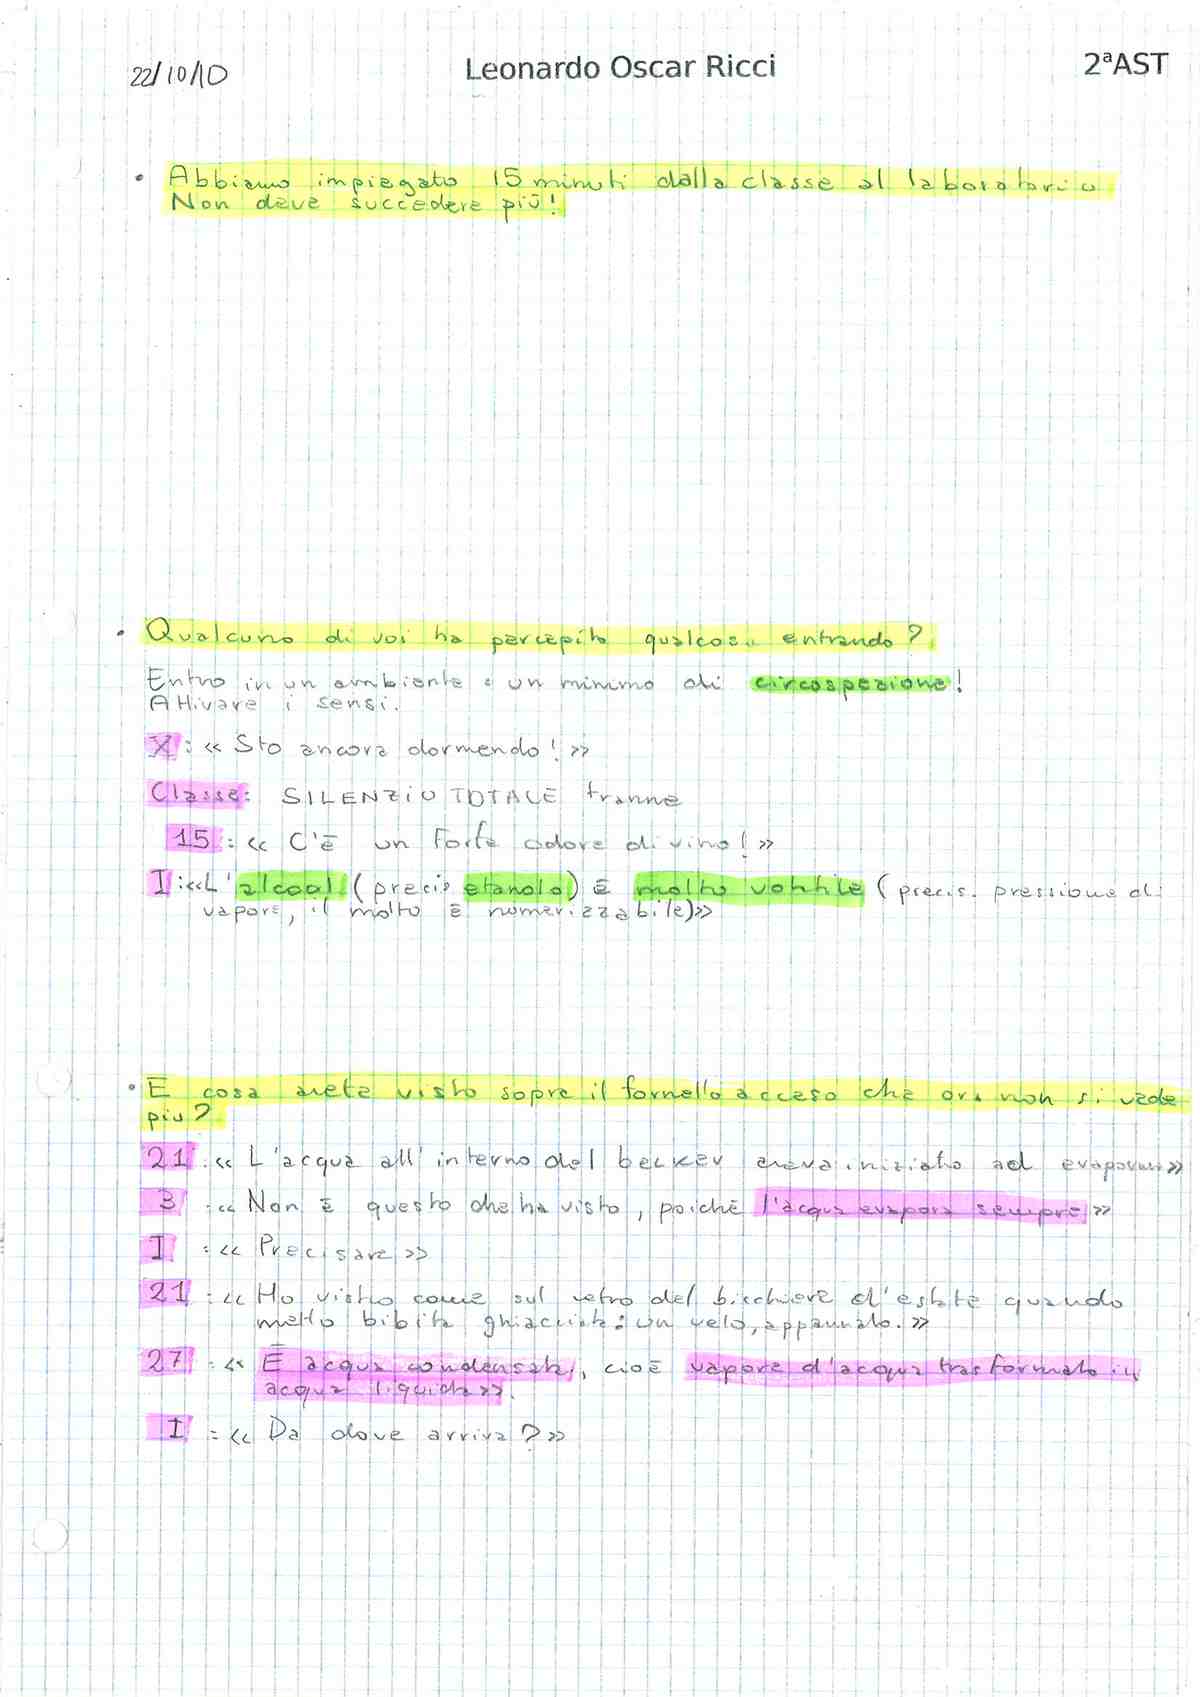 22/10/10 Leonardo Oscar Ricci 2ªAST
• Abbiamo impiegato 15 minuti dalla classe al laboratorio
Non deve succedere più!
• Qualcuno di voi ha percepito qualcosa entrando?
Entro in un ambiente: un minimo di circospezione!
Attivare i sensi.
X: «Sto ancora dormendo!»
Classe: SILENZIO TOTALE tranne
15: «C'è un forte odore di vino!»
I: «L'alcool (precis etanolo) è molto volatile (precis. pressione di
vapore, il molto è numerizzabile)»
• E cosa avete visto sopra il fornello acceso che ora non si vede
più?
21: «L'acqua all'interno del becker aveva iniziato ad evaporare»
3: «Non è questo che ha visto, poiché l'acqua evapora sempre»
I: «Precisare»
21: «Ho visto come sul vetro del bicchiere d'estate quando
metto bibita ghiacciata: un velo, appannato.»
27: «È acqua condensata, cioè vapore d'acqua trasformato in
acqua liquida».
I: «Da dove arriva?»